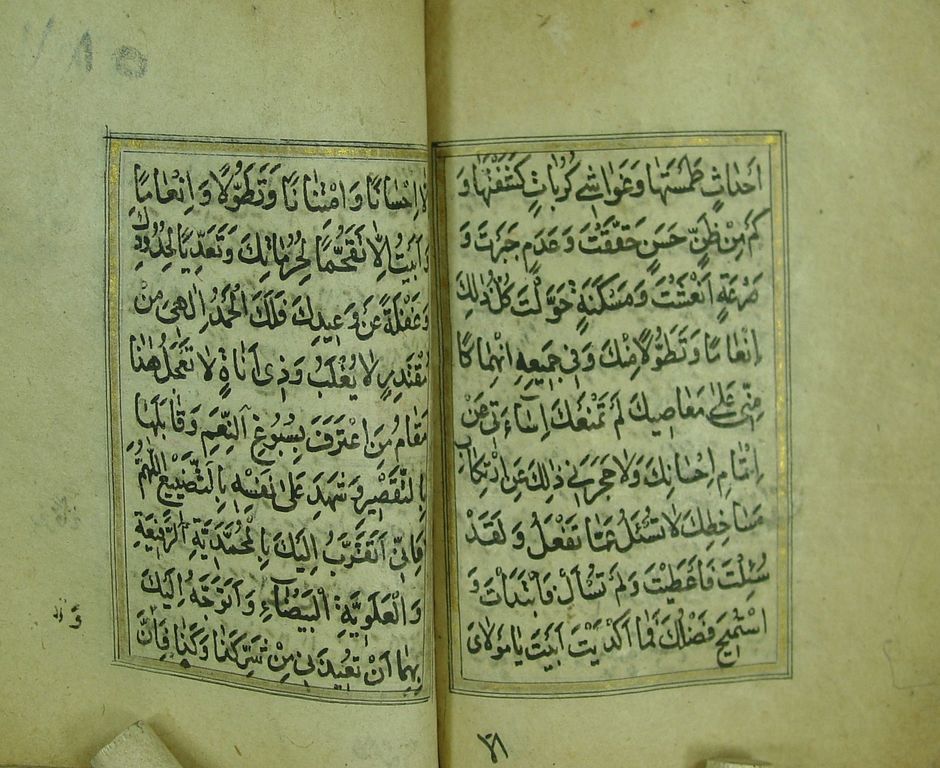 اَحْداثٍ طَمَسْتَها وَغَواشِىَ كُرُباتٍ كَشَفْتَها وَ
كَمْ مِنْ ظَنٍّ حَسَنٍ حَقَّقْتَ وَعَدَمٍ جَبَرْتَ وَ
صَرْعَةٍ اَنْعَشْتَ وَمَسْكَنَةٍ حَوَّلْتَ كُلُّ ذٰلِكَ
اِنْعامًا وَتَطَوُّلًا مِنْكَ وَفى جَميعِهِ انْهِماكًا
مِنّى عَلى مَعاصيكَ لَمْ تَمْنَعْكَ اِسآءَتى عَنْ
اِتْمامِ اِحْسانِكَ وَلا حَجَرَنى ذٰلِكَ عَنِ ارْتِكابِ
مَساخِطِكَ لا تُسْئَلُ عَمّا تَفْعَلُ وَلَقَدْ
سُئِلْتَ فَاَعْطَيْتَ وَلَمْ تُسْأَلْ فَابْتَدَأْتَ وَ
اسْتُميحَ فَضْلُكَ فَما اَكْدَيْتَ اَبَيْتَ يا مَوْلاىَ
٧١
اِلّا اِحْسانًا وَامْتِنانًا وَتَطَوُّلًا وَاِنْعامًا
وَاَبَيْتُ اِلّا تَقَحُّمًا لِحُرُماتِكَ وَتَعَدِّيًا لِحُدُودِكَ
وَغَفْلَةً عَنْ وَعيدِكَ فَلَكَ الْحَمْدُ اِلٰهى مِنْ
مُقْتَدِرٍ لا يُغْلَبُ وَذى اَناةٍ لا تَعْجَلُ هٰذا
مَقامُ مَنِ اعْتَرَفَ بِسُبُوغِ النِّعَمِ وَقابَلَها
بِالتَّقْصيرِ وَشَهِدَ عَلى نَفْسِهِ بِالتَّضْييعِ اَللّٰهُمَّ
فَاِنّى اَتَقَرَّبُ اِلَيْكَ بِالْمُحَمَّدِيَّةِ الرَّفيعَةِ
وَالْعَلَوِيَّةِ الْبَيْضآءِ وَاَتَوَجَّهُ اِلَيْكَ
بِهِما اَنْ تُعيذَنى مِنْ شَرِّ كَذا وَكَذا فَاِنَّ